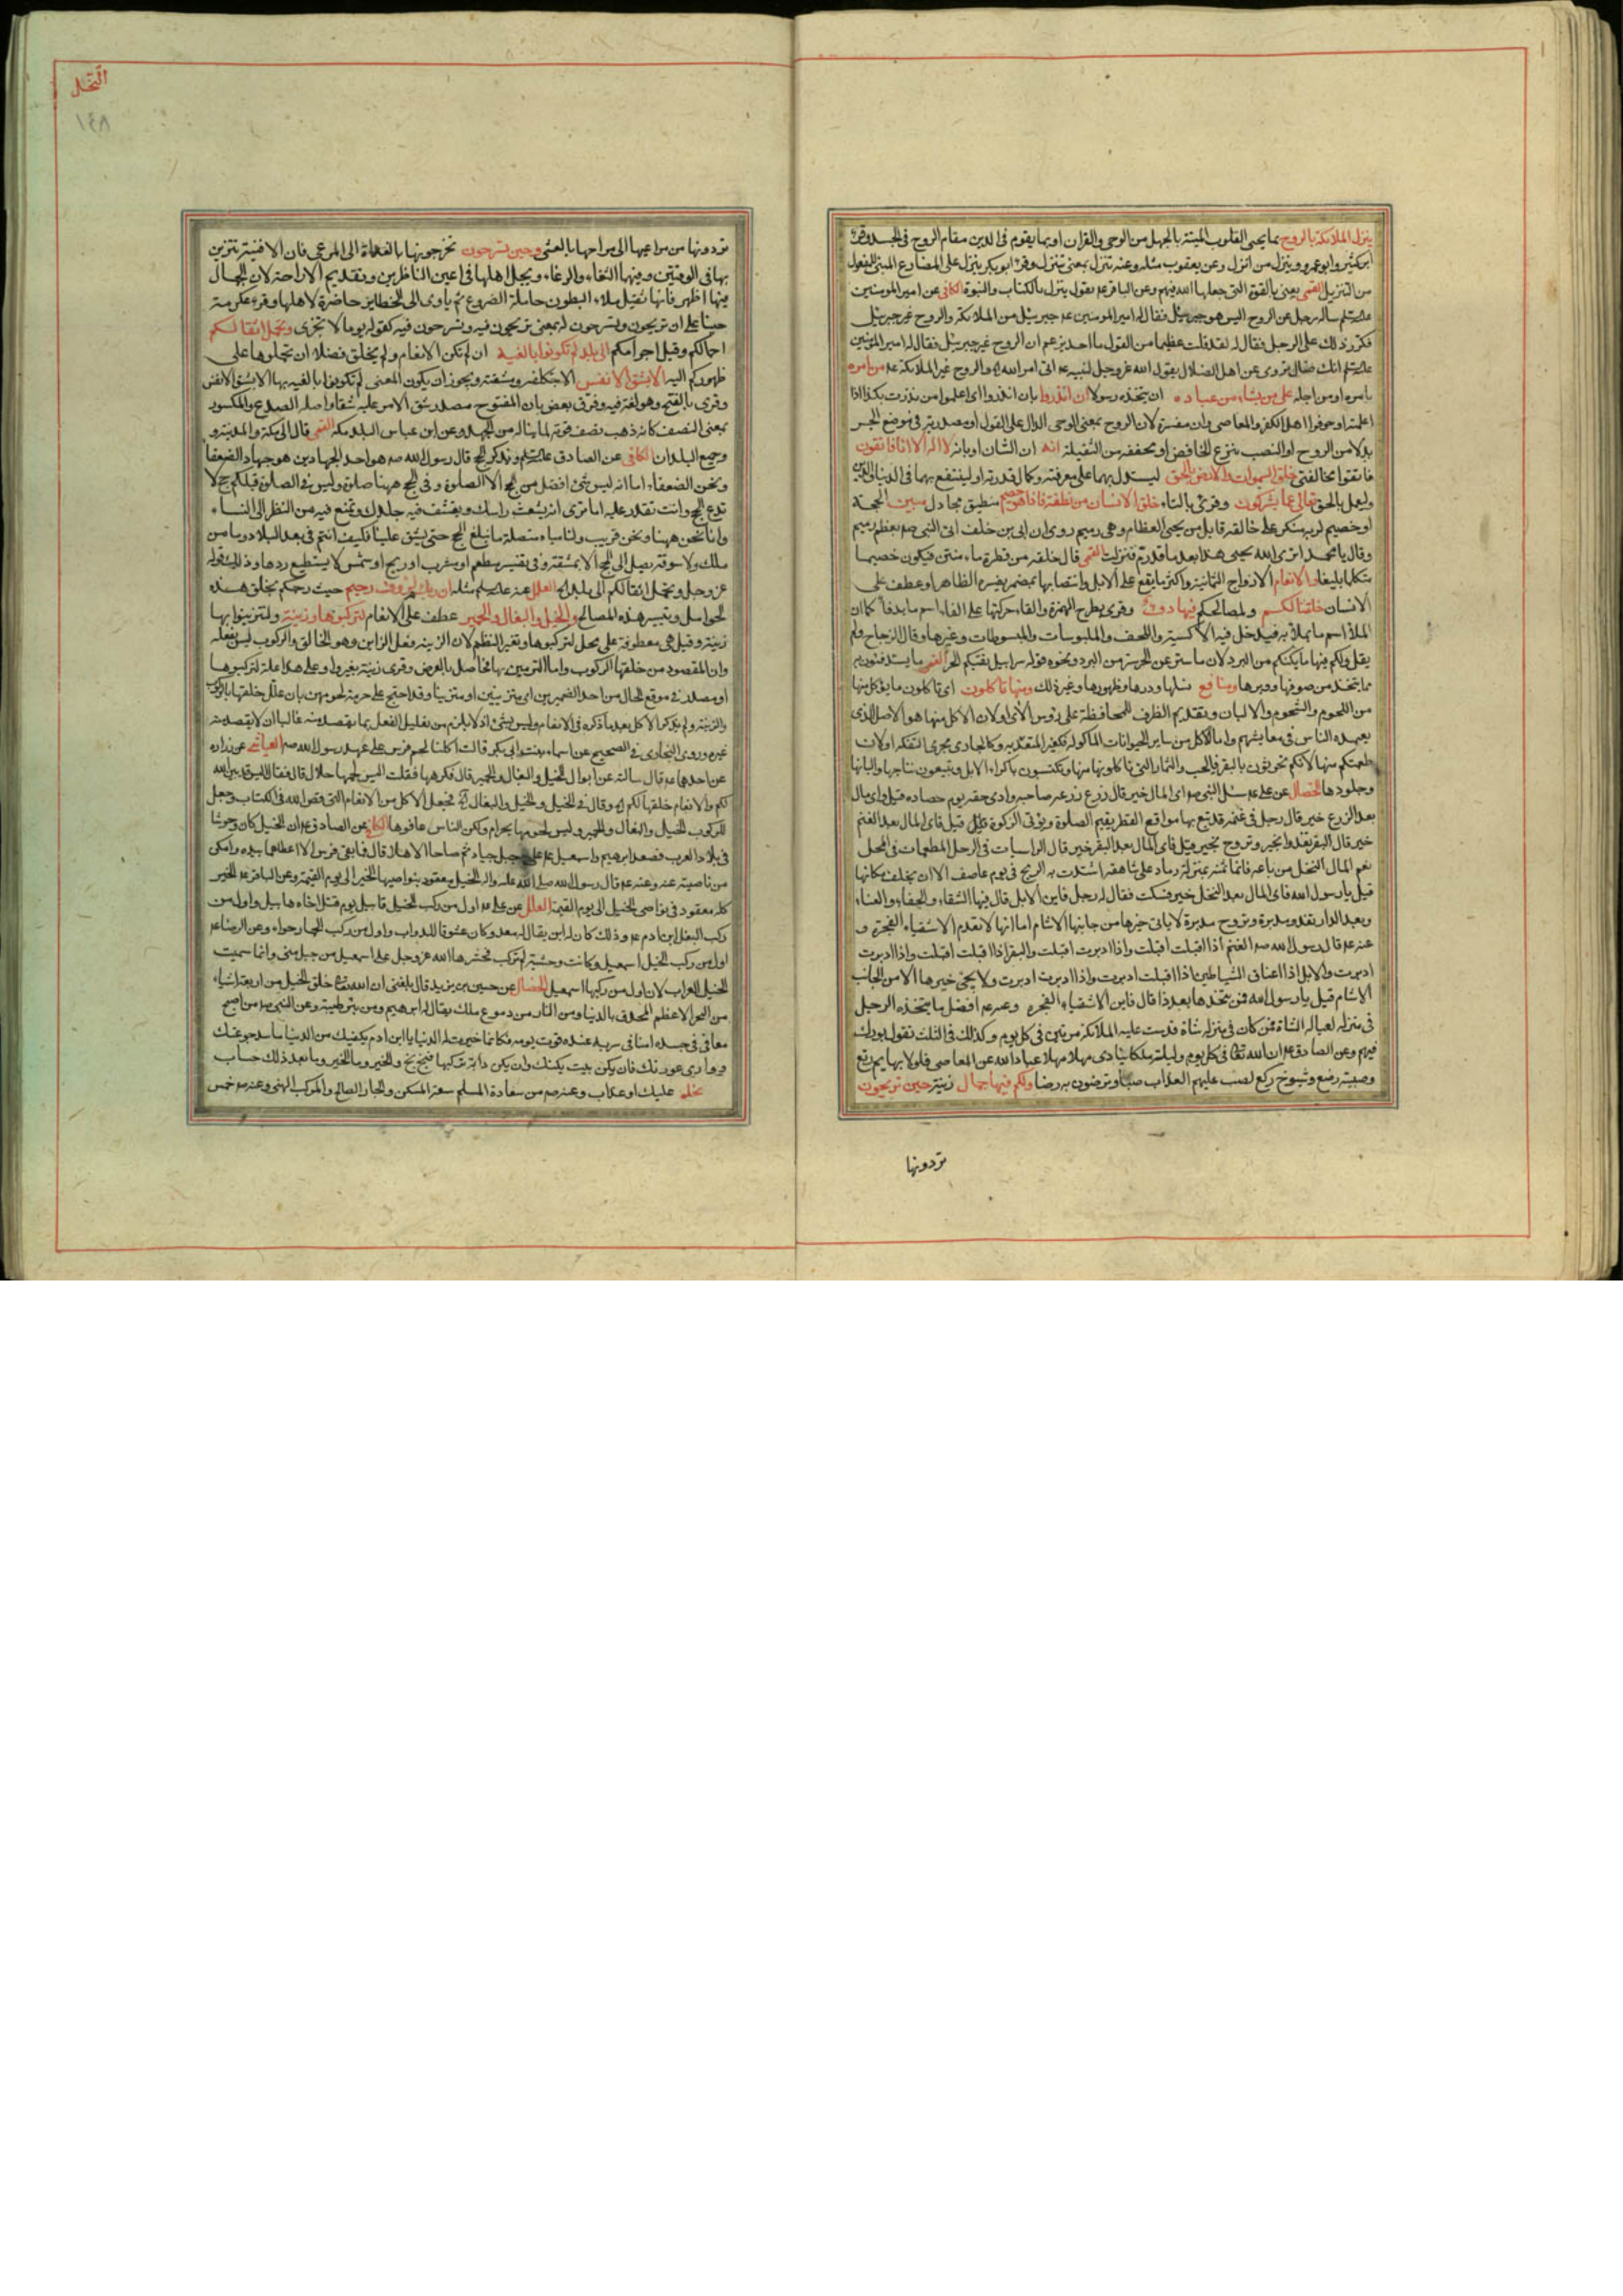 ينزل الملائكة بالروح بما يحيى القلوب الميتة بالجهل من الوحى والقران او بما يقوم فى الدين مقام الروح فى الجسد وقرئ
ابن كثير وابو عمرو وينزل من انزل وعن يعقوب مثله وعنه تنزل بمعنى تتنزل وقرئ ابو بكر ينزل على المضارع المبنى للمفعول
من التنزيل القمى يعنى بالقوة التى جعلها الله فيهم وعن الباقر عم يقول ينزل بالكتاب والنبوة الكافى عن امير المومنين
ساله رجل عن الروح اليس هو جبرئيل فقال له امير المومنين عم جبرئيل من الملائكة والروح غير جبرئيل
فكرر ذلك على الرجل فقال له لقد قلت عظيما من القول ما احد يزعم ان الروح غير جبرئيل فقال له امير المومنين
انك ضال تروى عن اهل الضلال يقول الله عز وجل لنبيه عم اتى امر الله والروح غير الملائكة عم من امره
بامره او من اجله على من يشاء من عباده ان يتخذه رسولا ان انذروا بان انذروا اى اعلموا من نذرت بكذا اذا
اعلمته او خوفوا اهل الكفر والمعاصى وان مفسرة لان الروح بمعنى الوحى الدال على القول او مصدرية فى موضع الجر
بدلا من الروح او النصب بنزع الخافض او مخففة من الثقيلة انه ان الشان او بانه لا اله الا انا فاتقون
خلق السموات والارض بالحق ليستدل بهما على معرفته وكمال قدرته او لينتفع بهما فى الدنيا والدين
وليعمل بالحق تعالى عما يشركون وقرئ بالتاء خلق الانسان من نطفة فاذا هو خصيم منطيق مجادل مبين الحجة
او خصيم لربه منكر على خالقه قابل من يحيى العظام وهى رميم روى ان ابى بن خلف اتى النبى صم بعظم رميم
وقال يا محمد اترى الله يحيى هذا بعد ما قد رم فنزلت القمى قال خلقه من قطرة ماء منتن فيكون خصيما
متكلما بليغا والانعام الازواج الثمانية واكثر ما يقع على الابل وانتصابها بمضمر يفسره الظاهر او عطف على
الانسان خلقنا لكم ولمصالحكم فيها دفء وقرى بطرح الهمزة والقاء حركتها على الفاء اسم ما يدفأ كما ان
الملأ اسم ما يملأ به فيدخل فيه الاكسية واللحف والملبوسات والمبسوطات وغيرها وقال الزجاج ولم
يقل ولكم فيها ما يكنكم من البرد لان ما ستر عن الحر ستر من البرد ونحوه قوله سرابيل تقيكم الحر القمى ما يستدفئون به
مما يتخذ من صوفها ووبرها ومنافع نسلها ودرها وظهورها وغير ذلك ومنها تاكلون اى تاكلون ما يؤكل منها
من اللحوم والشحوم والالبان وتقديم الظرف للمحافظة على رؤس الآى او لان الاكل منها هو الاصل الذى
يعمده الناس فى معايشهم واما الاكل من ساير الحيوانات الماكولة فكغير المعتد به وكالجارى مجرى التفكه او لان
طعمتكم منها لانكم تحرثون بالبقر فالحب والثمار التى تاكلونها منها وتكتسبون باكراء الابل وتبيعون نتاجها والبانها
وجلودها الخصال عن على عم سئل النبى صم اى المال خير قال زرع زرعه صاحبه وادى حقه يوم حصاده قيل واى مال
بعد الزرع خير قال رجل فى غنمه قد تبع بها مواقع القطر يقيم الصلوة ويؤتى الزكوة قيل فاى المال بعد الغنم
خير قال البقر تغدو بخير وتروح بخير قيل فاى المال بعد البقر خير قال الراسيات فى الوحل المطعمات فى المحل
نعم المال النخل من باعه فانما ثمنه بمنزلة رماد على شاهقة اشتدت به الريح فى يوم عاصف الا ان يخلف مكانها
قيل يا رسول الله فاى المال بعد النخل خير فسكت فقال له رجل فاين الابل قال فيها الشقاء والجفاء والعناء
وبعد الدار تغدو مدبرة وتروح مدبرة لا ياتى خيرها من جانبها الاشام اما انها لا تعدم الاشقياء الفجرة و
عنه عم قال رسول الله صم الغنم اذا اقبلت اقبلت واذا ادبرت اقبلت والبقر اذا اقبلت اقبلت واذا ادبرت
ادبرت والابل اذا اعناق الشياطين اذا اقبلت ادبرت واذا ادبرت ادبرت ولا يجئ خيرها الا من الجانب
الاشام قيل يا رسول الله فمن يتخذها بعد ذا قال فاين الاشقياء الفجرة وعنه عم افضل ما يتخذه الرجل
فى منزله لعياله الشاة فمن كان فى منزله شاة قدست عليه الملائكة مرتين فى كل يوم وكذلك فى الثلث تقول بورك
فيهم وعن الصادق عم ان الله تعالى فى كل يوم وليلة ملكا ينادى مهلا مهلا عباد الله عن المعاصى فلولا بهايم رتع
وصبية رضع وشيوخ ركع لصب عليهم العذاب صبا وترضون به رضا ولكم فيها جمال زينة حين تريحون
تردونها
النحل
١٤٨
تردونها من مراعيها الى مراحها بالعشى وحين تسرحون تخرجونها بالغداة الى المرعى فان الافنية تتزين
بها فى الوقتين ومنها الثغاء والرغاء ويجل اهلها فى اعين الناظرين وتقديم الاراحة لان الجمال
فيها اظهر فانها تقبل ملاء البطون حاملة الضروع ثم ياوى الى الحظاير حاضرة لاهلها وقرء عكرمة
حينا على ان تريحون وتسرحون له بمعنى تريحون فيه وتسرحون فيه كقوله يوما لا تجزى وتحمل اثقالكم
احمالكم وقيل اجرامكم الى بلد لم تكونوا بالغيه ان لم تكن الانعام ولم يخلق فضلا ان تحملوها على
ظهوركم اليه الا بشق الانفس الا بتكلفه ومشقة ويجوز ان يكون المعنى لم تكونوا بالغيه بها الا بشق الانفس
وقرى بالفتح وهو لغة فيه وفرق بعض بان المفتوح مصدر شق الامر عليه شقا واصله الصدع والمكسور
بمعنى النصف كانه ذهب نصف قوته لما يناله من الجهد وعن ابن عباس البلد مكة القمى قال الى مكة والمدينة و
جميع البلدان الكافى عن الصادق ويذكر الحج قال رسول الله صم هو احد الجهادين هو جهاد الضعفاء
ونحن الضعفاء اما انه ليس شئ افضل من الحج الا الصلوة وفى الحج ههنا صلوة وليس فى الصلوة قبلكم حج لا
تدع الحج وانت تقدر عليه اما ترى انه يشعث راسك ويقشف فيه جلدك وتمنع فيه من النظر الى النساء
وانا نحن ههنا ونحن قريب ولنا مياه متصلة ما نبلغ الحج حتى يشق علينا فكيف انتم فى بعد البلاد وما من
ملك ولا سوقة يصل الى الحج الا بمشقة فى تغيير مطعم او مشرب او ريح او شمس لا يستطيع ردها وذلك قوله
عز وجل وتحمل اثقالكم الى بلد الآية العلل عنه مثله ان ربكم لرؤف رحيم حيث رحمكم بخلق هذه
الحوامل وتيسير هذه المصالح والخيل والبغال والحمير عطف على الانعام لتركبوها وزينة ولتتزينوا بها
زينة وقيل هى معطوفة على محل لتركبوها وتغير النظم لان الزينة بفعل الزاين وهو الخالق والركوب ليس بفعله
وان المقصود من خلقها الركوب واما التزيين بها فحاصل بالعرض وقرى زينة بغير واو وعلى هذا علة لتركبوها
او مصدر فى موقع الحال من احد الضميرين اى متزينين او متزينا وقد احتج على حرمة لحومهن بان علل خلقها بالركوب
والزينة ولم يذكر الاكل بعد ما ذكره فى الانعام وليس بشئ اذ لا يلزم من تعليل الفعل بما يقصد منه غالبا ان لا يقصد منه
غيره وروى البخارى فى الصحيح عن اسماء بنت ابى بكر قالت اكلنا لحم فرس على عهد رسول الله صم العياشى عن زرارة
عن احدهما عم قال سالته عن ابوال الخيل والبغال والحمير قال فكرهها فقلت اليس لحمها حلال قال فقال اليس قد بين الله
لكم والانعام خلقها لكم وقال فى الخيل والخيل والبغال الآية فجعل الاكل من الانعام التى قص الله فى الكتاب وجعل
للركوب الخيل والبغال والحمير وليس لحومها بحرام ولكن الناس عافوها الكافى عن الصادق عم ان الخيل كان وحوشا
فى بلاد العرب فصعد ابرهيم واسمعيل عم على جبل جياد ثم صاحا الا هلا قال فما بقى فرس الا اعطاهما بيده وامكن
من ناصيته عنه وعنه عم قال رسول الله صلى الله عليه واله الخيل معقود بنواصيها الخير الى يوم القيمة وعن الباقر عم الخير
كله معقود فى نواصى الخيل الى يوم القيمة العلل عن على عم اول من ركب الخيل قابيل يوم قتل اخاه هابيل واول من
ركب البغل ابن ادم عم وذلك كان له ابن يقال له معد وكان عشوقا للدواب واول من ركب الحمار حواء وعن الرضا عم
اول من ركب الخيل اسمعيل وكانت وحشية لم تركب فحشرها الله عز وجل على اسمعيل من جبل منى وانما سميت
الخيل العراب لان اول من ركبها اسمعيل الخصال عن حسين بن يزيد قال بلغنى ان الله تعالى خلق الخيل من اربعة اشياء
من البحر الاعظم المحدق بالدنيا ومن النار من دموع ملك يقال له ابرهيم ومن بئر طيبة وعن النبى صم من اصبح
معافى فى جسده امنا فى سربه عنده قوت يومه فكانما خيرت له الدنيا يا ابن ادم يكفيك من الدنيا ما سد جوعتك
ووارى عورتك فان يكن بيت يكنك وان يكن دابة تركبها فبخ بخ والخير وما الخير وما بعد ذلك حساب
عليك او عذاب وعنه صم من سعادة المسلم سعة المسكن والجار الصالح والمركب الهنى وعنه صم خمس